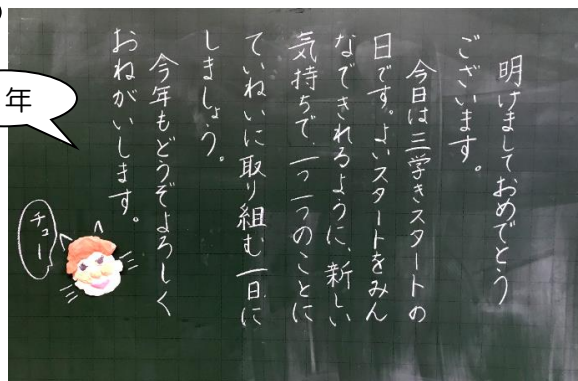 明けましておめでとう
ございます。
今日は三学きスタートの
日です。よいスタートをみん
なできれるように、新しい
気持ちで、一つ一つのことに
ていねいに取り組む一日に
しましょう。
今年もどうぞよろしく
おねがいします。
チュー
年